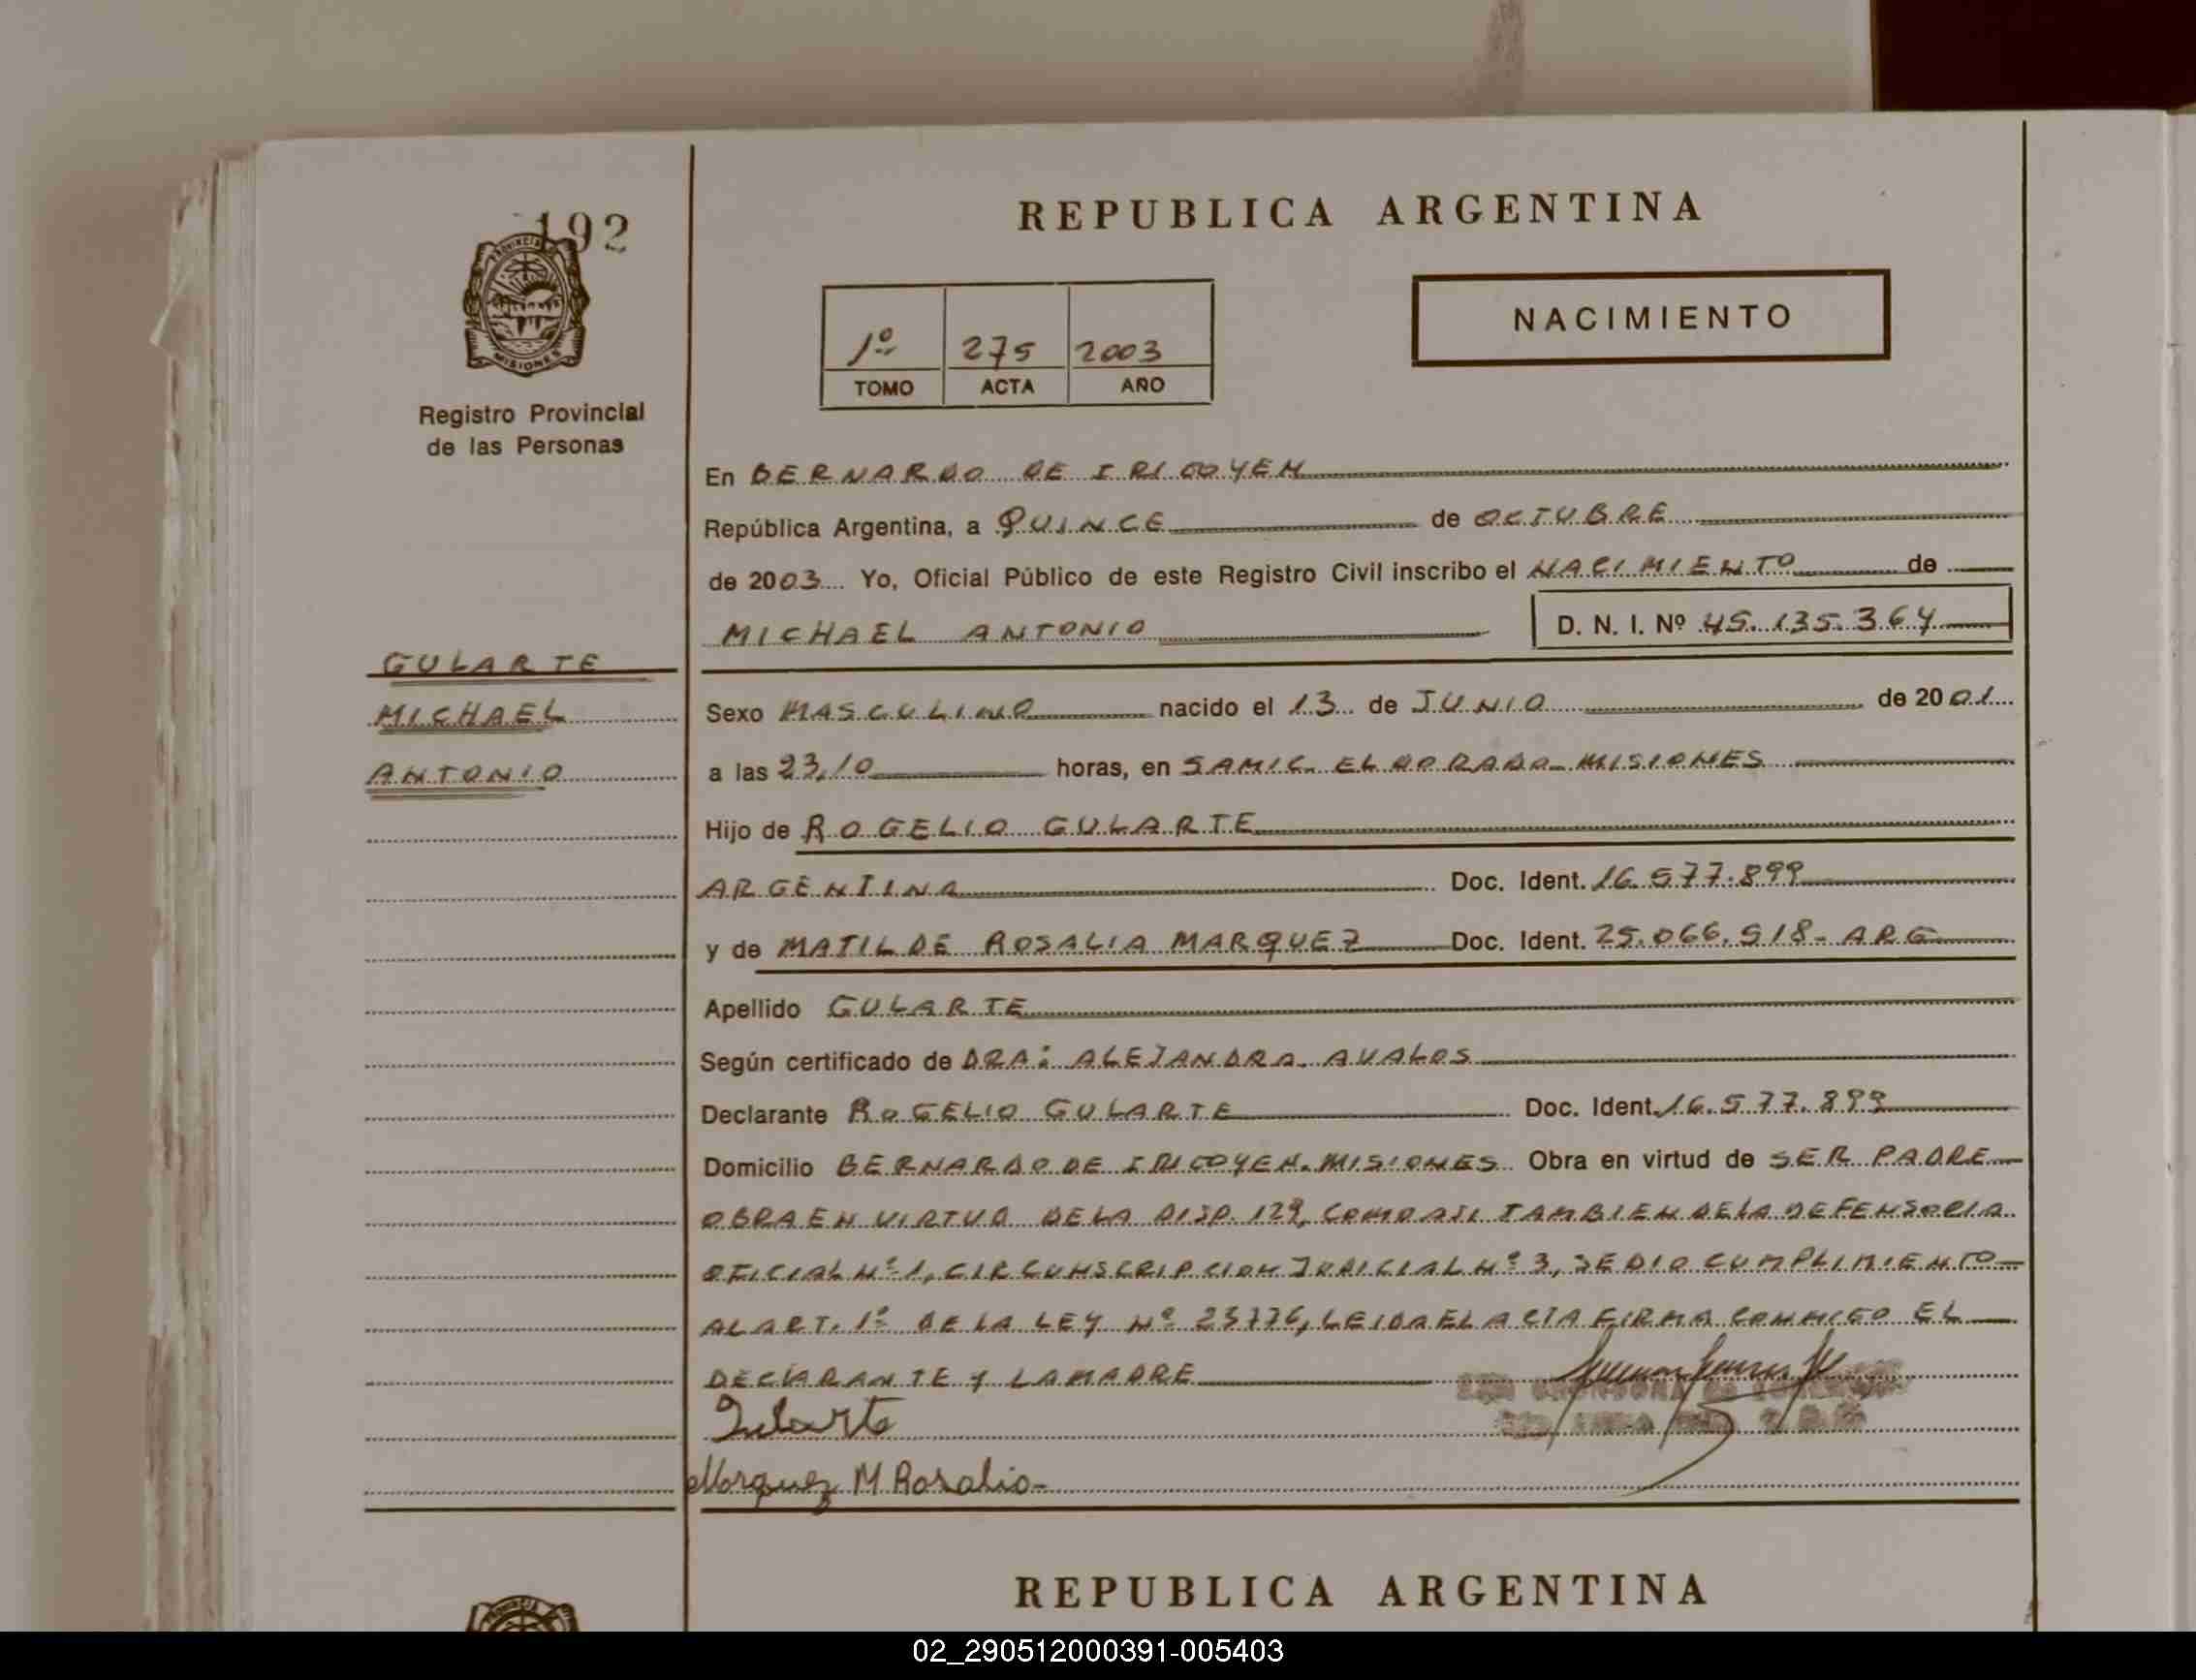 192
PROVINCIA DE
MISIONES
Registro Provincial
de las Personas
REPUBLICA ARGENTINA
NACIMIENTO
1º 275 2003
TOMO ACTA AÑO
En BERNARDO DE IRIGOYEN
República Argentina, a QUINCE de OCTUBRE
de 2003 Yo, Oficial Público de este Registro Civil inscribo el NACIMIENTO de
MICHAEL ANTONIO D. N. I. Nº 45.135.364
GULARTE
MICHAEL
ANTONIO
Sexo MASCULINO nacido el 13 de JUNIO de 2001
a las 23,10 horas, en SAMIC ELDORADO-MISIONES
Hijo de ROGELIO GULARTE
ARGENTINA Doc. Ident. 16.577.899
y de MATILDE ROSALIA MARQUEZ Doc. Ident. 25.066.918- ARG
Apellido GULARTE
Según certificado de DRA: ALEJANDRA AVALOS
Declarante ROGELIO GULARTE Doc. Ident. 16.577.899
Domicilio BERNARDO DE IRIGOYEN. MISIONES Obra en virtud de SER PADRE
OBRA EN VIRTUD DE LA DISP. 129, COMO ASI TAMBIEN DE LA DEFENSORIA
OFICIAL Nº 1, CIRCUNSCRIPCION JUDICIAL Nº 3, SE DIO CUMPLIMIENTO
AL ART. 1º DE LA LEY Nº 23776, LEIDA EL ACTA FIRMA CONMIGO EL
DECLARANTE Y LA MADRE
Gularte
Marquez M Rosalia
REPUBLICA ARGENTINA
PROVINCIA
02_290512000391-005403